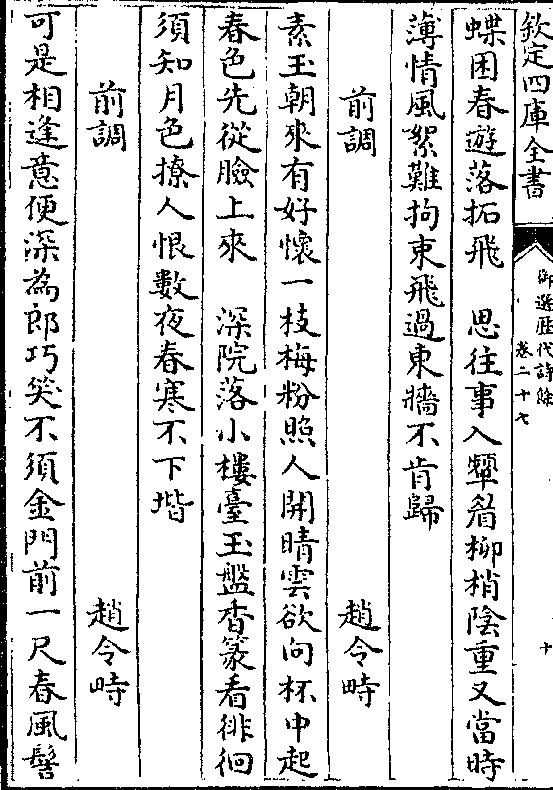 欽定四庫全書
御選歴代詩餘
卷二十七
十
蝶困春遊落拓飛　思往事入顰眉柳梢陰重又當時
薄情風絮難拘束飛過東牆不肯歸
前調　趙令畤
素玉朝來有好懷一枝梅粉照人開晴雲欲向杯中起
春色先從臉上來　深院落小樓臺玉盤香篆看徘徊
須知月色撩人恨數夜春寒不下堦
前調　趙令畤
可是相逢意便深為郎巧笑不須金門前一尺春風髻